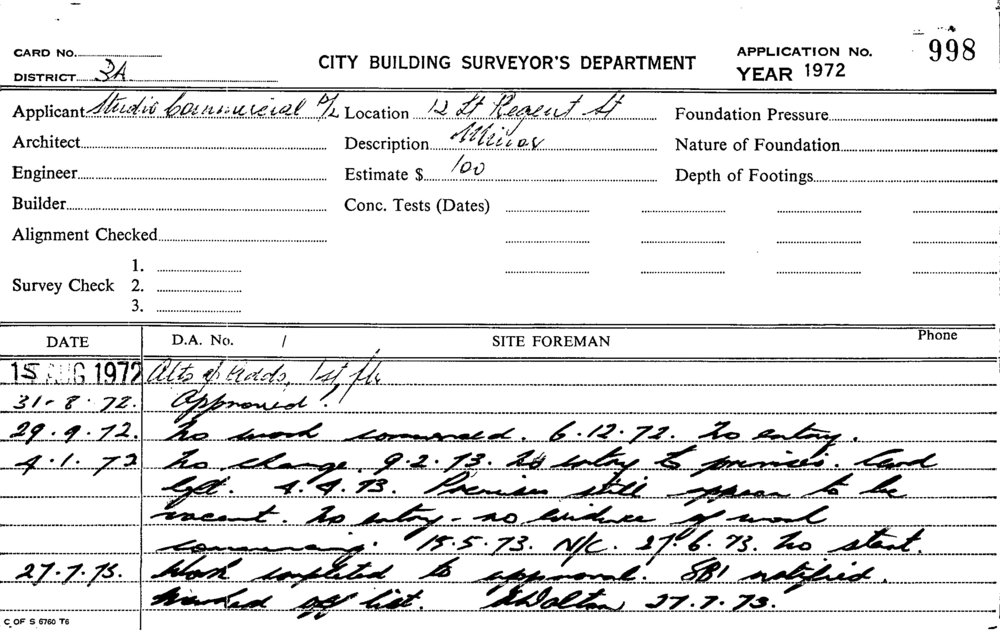 CARD No.
DISTRICT 3A
CITY BUILDING SURVEYOR'S DEPARTMENT
APPLICATION No. 998
YEAR 1972
Applicant Studio Commercial P/L Location 12 Lt Regent St Foundation Pressure
Architect Description Minor Nature of Foundation
Engineer Estimate $ 100 Depth of Footings
Builder Conc. Tests (Dates)
Alignment Checked
1.
Survey Check 2.
3.
DATE D.A. No. / SITE FOREMAN Phone
15 AUG 1972 Alts & Adds, 1st flr
31-8-72. Approved.
29.9.72. No work commenced. 6.12.72. No entry.
4.1.72 No change. 9.2.73. No entry to premises. Card
left. 4.4.73. Premises still appear to be
vacant. No entry - no evidence of work
commencing. 15.5.73. N/C. 27.6.73. No start.
27.7.73. Work completed to approval. SBI notified.
Marked off list. Dalton 27.7.73.
C OF S 6760 T6